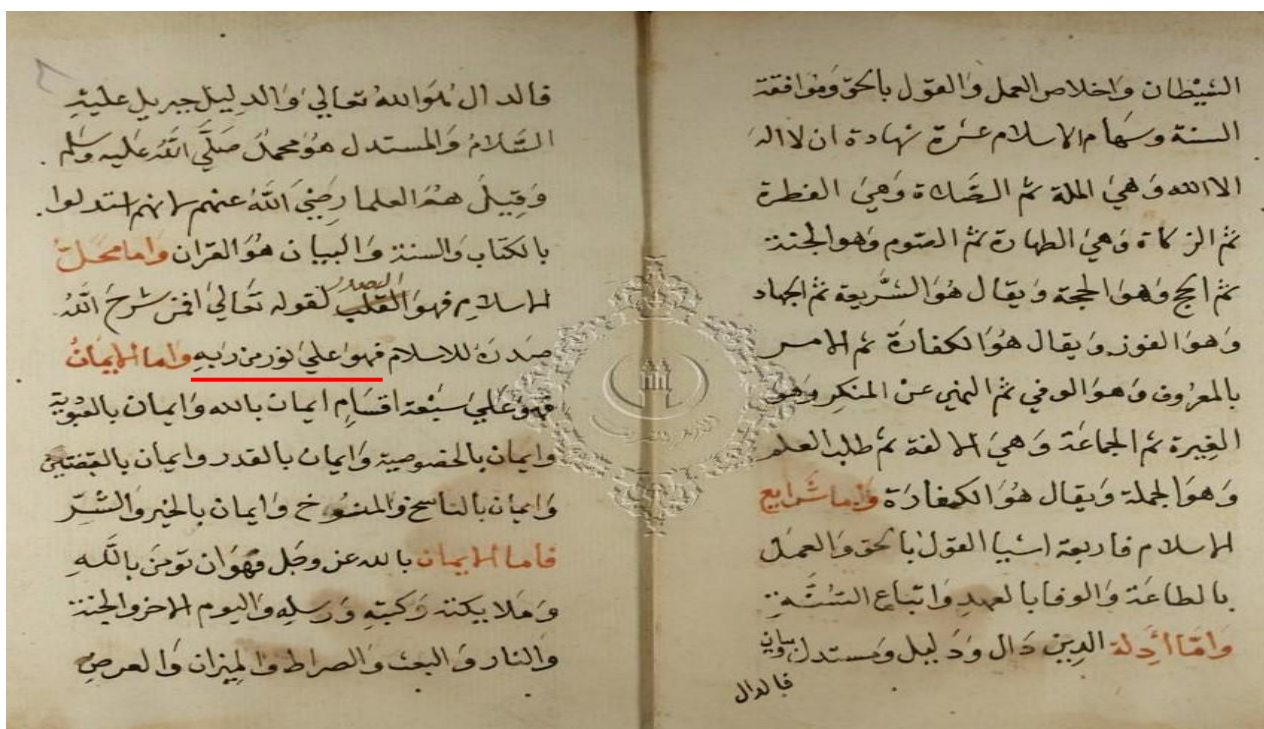 الشيطان واخلاص العمل والقول بالحق وموافقة
السنة وسهام الاسلام عشرة شهادة ان لا اله
الا الله وهي الملة ثم الصلاة وهي الفطرة
ثم الزكاة وهي الطهارة ثم الصوم وهو الجنة
ثم الحج وهو الحجة ويقال هو الشريعة ثم الجهاد
وهو الفوز ويقال هو الكفارة ثم الامر
بالمعروف وهو الوفي ثم النهي عن المنكر وهو
الغيرة ثم الجماعة وهي الالفة ثم طلب العلم
وهو الجملة ويقال هو الكفارة واما شرايع
الاسلام فاربعة اشيا القول بالحق والعمل
بالطاعة والوفا بالعهد واتباع السنة
واما أدلة الدين دال ودليل ومستدل وبيان
فالدال
فالدال هو الله تعالي والدليل جبريل عليه
السلام والمستدل هو محمد صلي الله عليه وسلم
وقيل هم العلما رضي الله عنهم لانهم استدلوا
بالكتاب والسنة والبيان هو القران واما محل
الاسلام فهو القلب لقوله تعالي افمن شرح الله
صدره للاسلام فهو علي نور من ربه واما الايمان
فهو علي سبعة اقسام ايمان بالله وايمان بالغيوبية
وايمان بالخصوصية وايمان بالقدر وايمان
وايمان بالناسخ والمنسوخ وايمان بالخير والشر
فاما الايمان بالله عز وجل فهو ان تومن بالله
وملايكته وكتبه ورسله واليوم الاخر والجنة
والنار والبعث والصراط والميزان والعرض